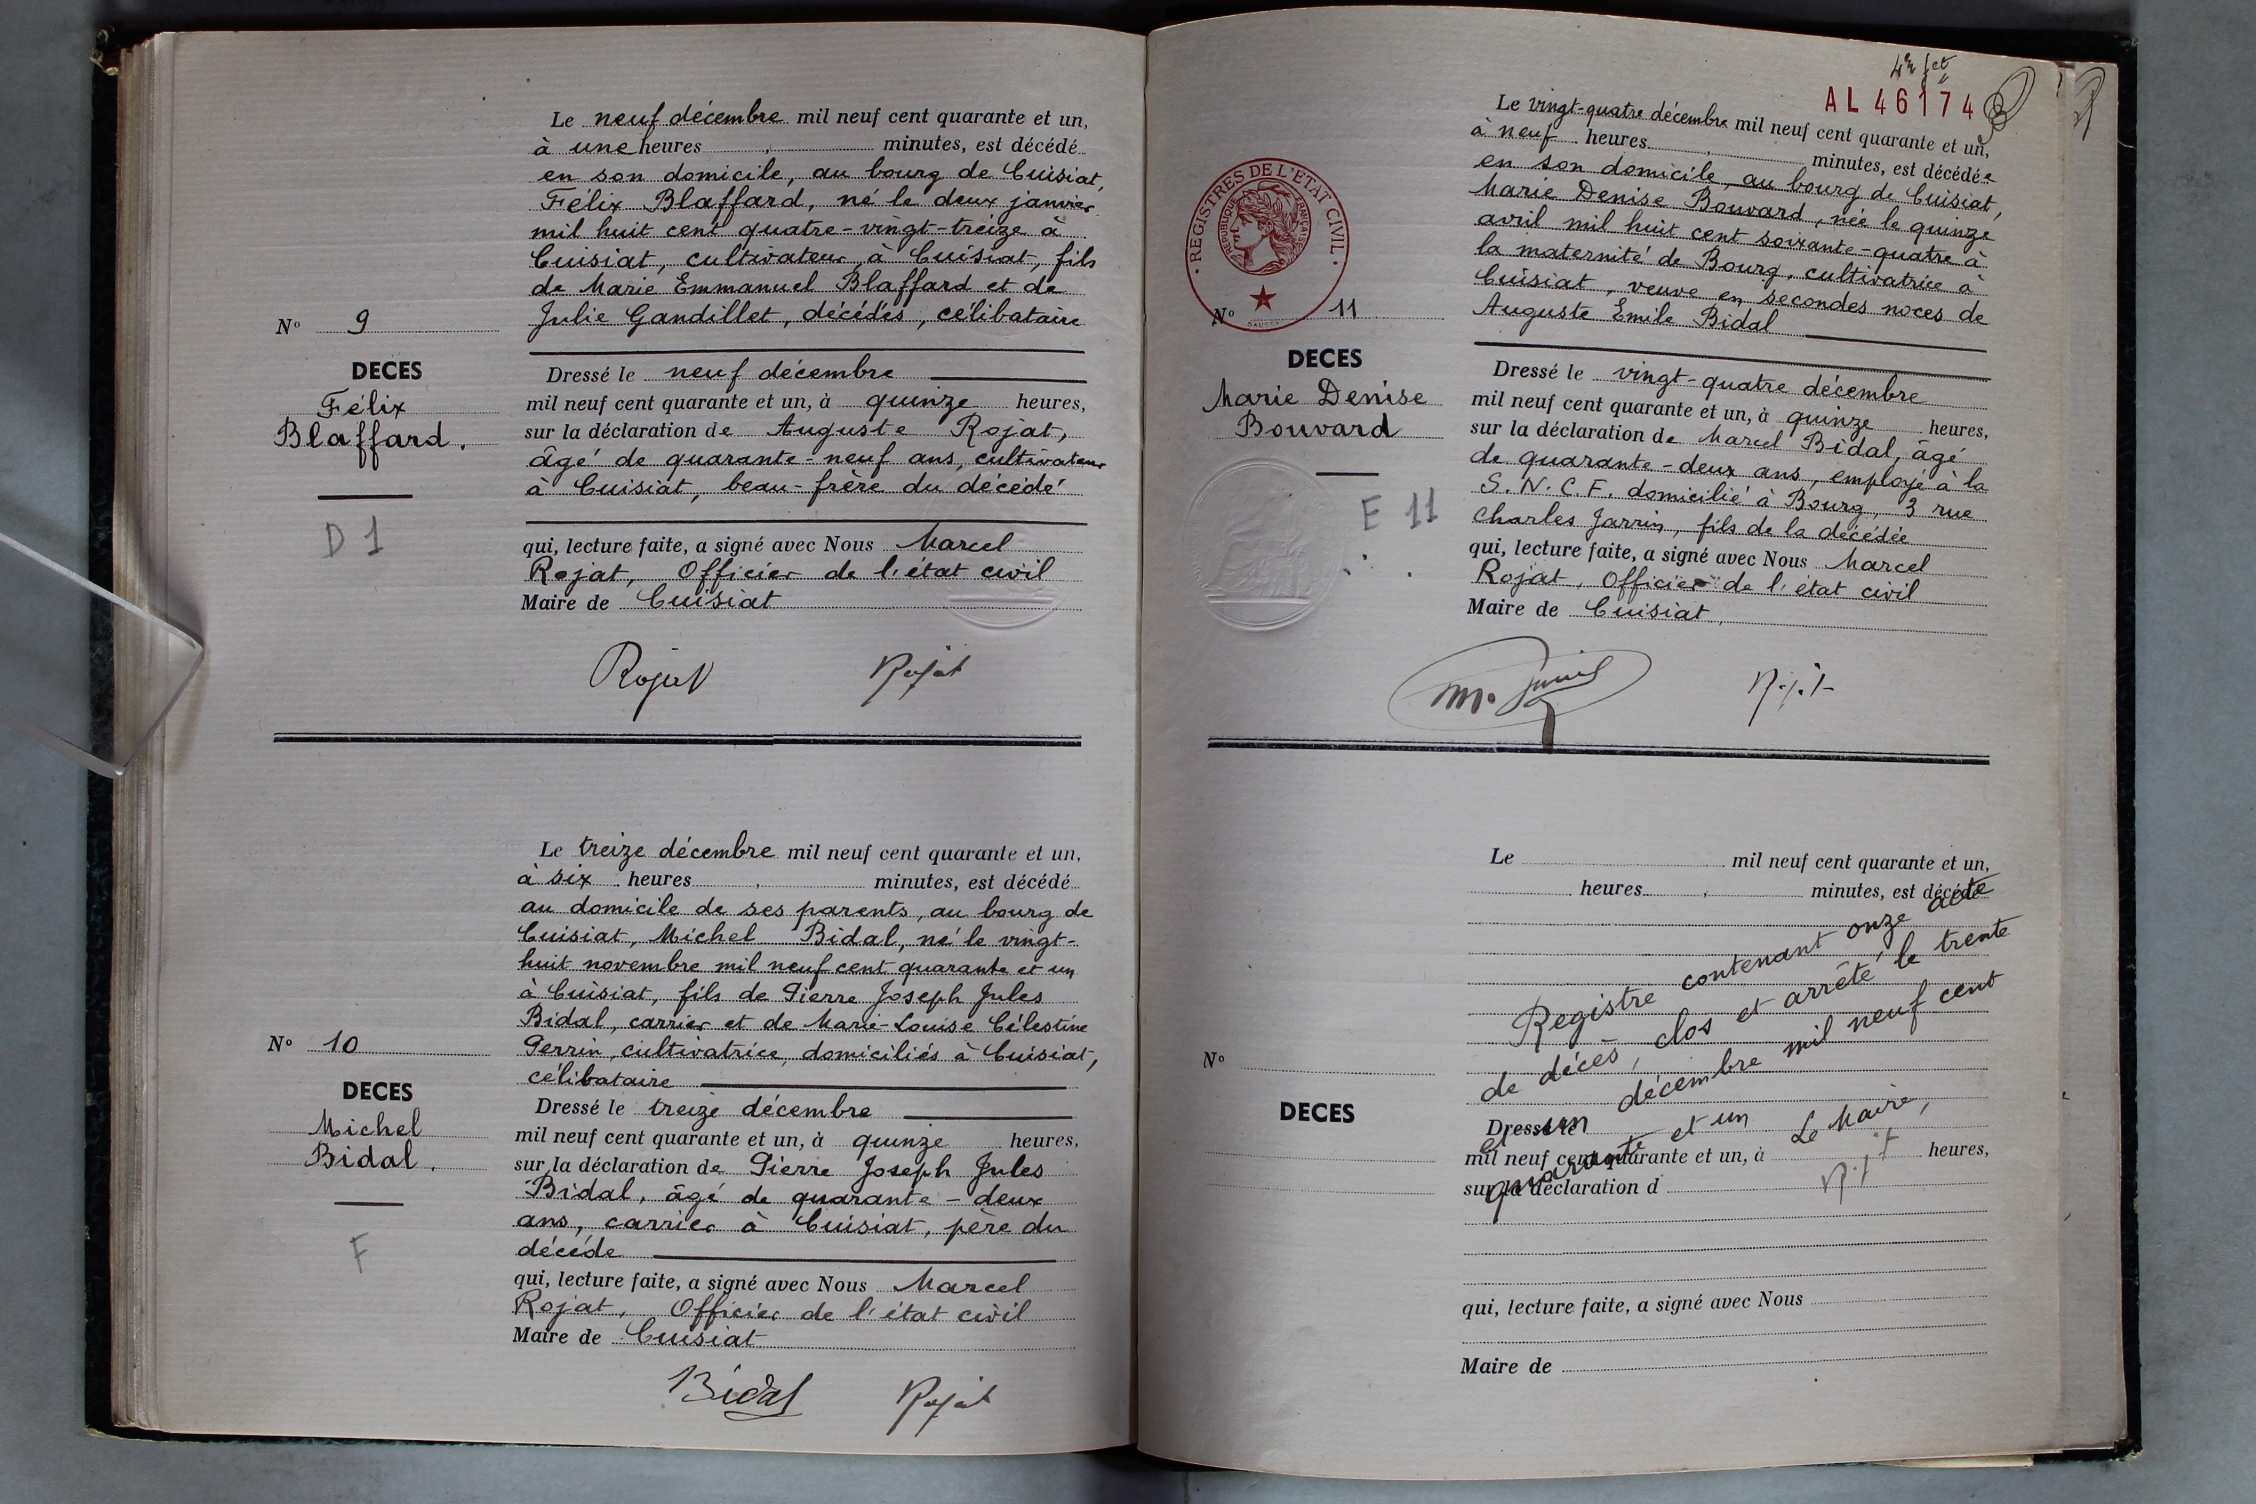 Le neuf décembre mil neuf cent quarante et un,
à une heures minutes, est décédé
en son domicile, au bourg de Cuisiat,
Félix Blaffard, né le deux janvier
mil huit cent quatre-vingt-treize à
Cuisiat, cultivateur à Cuisiat, fils
de Marie Emmanuel Blaffard et de
Julie Gandillet, décédés, célibataire
N° 9
DECES
Félix
Blaffard.
D 1
Dressé le neuf décembre
mil neuf cent quarante et un, à quinze heures,
sur la déclaration de Auguste Rojat,
âgé de quarante-neuf ans, cultivateur
à Cuisiat, beau-frère du décédé
qui, lecture faite, a signé avec Nous Marcel
Rojat, Officier de l'état civil
Maire de Cuisiat
Rojat Rojat
Le treize décembre mil neuf cent quarante et un,
à six heures minutes, est décédé
au domicile de ses parents, au bourg de
Cuisiat, Michel Bidal, né le vingt-
huit novembre mil neuf cent quarante et un
à Cuisiat, fils de Pierre Joseph Jules
Bidal, carrier et de Marie-Louise Célestine
Perrin, cultivatrice, domiciliés à Cuisiat,
célibataire
N° 10
DECES
Michel
Bidal.
F
Dressé le treize décembre
mil neuf cent quarante et un, à quinze heures,
sur la déclaration de Pierre Joseph Jules
Bidal, âgé de quarante-deux
ans, carrier à Cuisiat, père du
décédé
qui, lecture faite, a signé avec Nous Marcel
Rojat, Officier de l'état civil
Maire de Cuisiat
Bidal Rojat
AL 46174
Le vingt-quatre décembre mil neuf cent quarante et un,
à neuf heures minutes, est décédée
en son domicile, au bourg de Cuisiat,
Marie Denise Bouvard, née le quinze
avril mil huit cent soixante-quatre à
la maternité de Bourg, cultivatrice à
Cuisiat, veuve en secondes noces de
Auguste Emile Bidal
REGISTRES DE L'ETAT CIVIL
REPUBLIQUE FRANÇAISE
N° 11
DECES
Marie Denise
Bouvard
E 11
Dressé le vingt-quatre décembre
mil neuf cent quarante et un, à quinze heures,
sur la déclaration de Marcel Bidal, âgé
de quarante-deux ans, employé à la
S.N.C.F. domicilié à Bourg, 3 rue
Charles Jarrin, fils de la décédée
qui, lecture faite, a signé avec Nous Marcel
Rojat, Officier de l'état civil
Maire de Cuisiat,
Rojat
Le mil neuf cent quarante et un,
heures minutes, est décédé
Registre contenant onze acte
de décès, clos et arrêté le trente
et un décembre mil neuf cent
quarante et un
Le Maire,
Rojat
N°
DECES
Dressé le
mil neuf cent quarante et un, à heures,
sur la déclaration d
qui, lecture faite, a signé avec Nous
Maire de